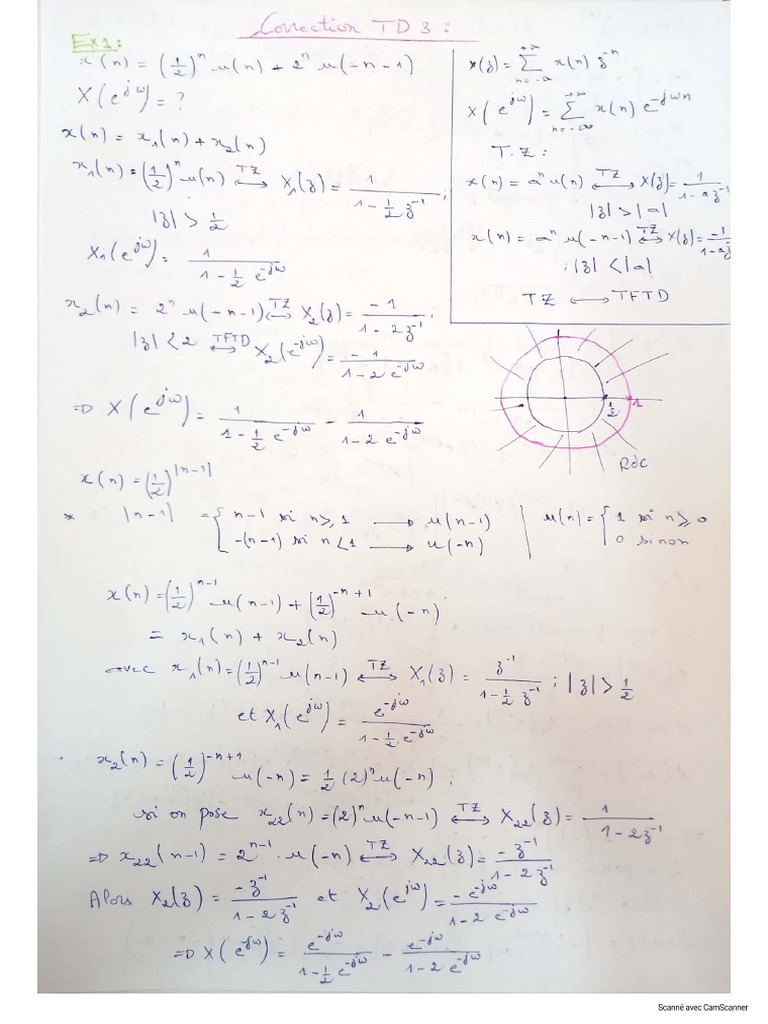 Correction TD 3 :
Ex1:
x(n) = (1/2)^n u(n) + 2^n u(-n-1)
X(e^{jω}) = ?
x(n) = x₁(n) + x₂(n)
x₁(n) = (1/2)^n u(n) <-TZ-> X₁(z) = 1/(1 - 1/2 z^{-1}) ;
|z| > 1/2
X₁(e^{jω}) = 1/(1 - 1/2 e^{-jω})
x₂(n) = 2^n u(-n-1) <-TZ-> X₂(z) = -1/(1 - 2z^{-1}) ;
|z| < 2 <-TFTD-> X₂(e^{-jω}) = -1/(1 - 2e^{-jω})
=> X(e^{jω}) = 1/(1 - 1/2 e^{-jω}) - 1/(1 - 2e^{-jω})
X(z) = Σ_{n=-∞}^{+∞} x(n) z^{-n}
X(e^{jω}) = Σ_{n=-∞}^{+∞} x(n) e^{-jωn}
T.Z :
x(n) = a^n u(n) <-TZ-> X(z) = 1/(1 - az^{-1})
|z| > |a|
x(n) = a^n u(-n-1) <-TZ-> X(z) = -1/(1 - az
; |z| < |a|
TZ <-> TFTD
1/2
1
RdC
x(n) = (1/2)^{|n-1|}
* |n-1| = { n-1 si n ≥ 1 → u(n-1)
-(n-1) si n < 1 → u(-n)
u(n) = { 1 si n ≥ 0
0 sinon
x(n) = (1/2)^{n-1} u(n-1) + (1/2)^{-n+1} u(-n)
= x₁(n) + x₂(n)
avec x₁(n) = (1/2)^{n-1} u(n-1) <-TZ-> X₁(z) = z^{-1}/(1 - 1/2 z^{-1}) ; |z| > 1/2
et X₁(e^{jω}) = e^{-jω}/(1 - 1/2 e^{-jω})
. x₂(n) = (1/2)^{-n+1} u(-n) = 1/2 (2)^n u(-n) ;
si on pose x₂₂(n) = (2)^n u(-n-1) <-TZ-> X₂₂(z) = 1/(1 - 2z^{-1})
=> x₂₂(n-1) = 2^{n-1} . u(-n) <-TZ-> X₂₂(z) = -z^{-1}/(1 - 2z^{-1})
Alors X₂(z) = -z^{-1}/(1 - 2z^{-1}) et X₂(e^{jω}) = -e^{-jω}/(1 - 2e^{-jω})
=> X(e^{-jω}) = e^{-jω}/(1 - 1/2 e^{-jω}) - e^{-jω}/(1 - 2e^{-jω})
Scanné avec CamScanner